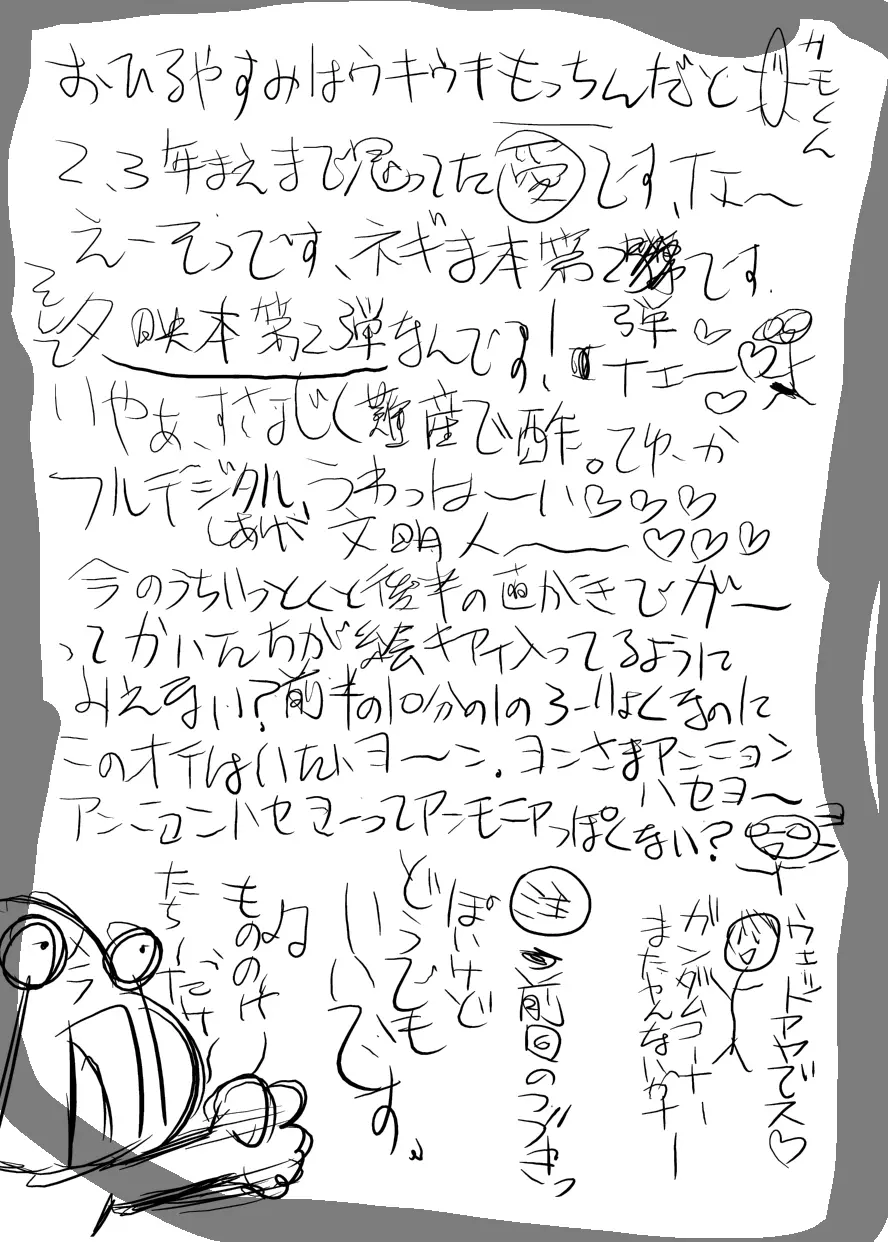 おひるやすみはウキウキもっちんだと
カモくん
2、3年まえまで思ってた愛です、イエー〜
えーそうです、ネギま本第2です.
弾
そして
映本第2弾なんです!
イエー〜♡
いやぁ、すさまじく難産で酢。てゆーか
フルデジタル、うわっはーーい♡♡♡
しあげが 文明人〜〜♡♡♡
今のうちいっとくと後半の直がきでガー
ってかいたんちが絵キアイ入ってるように
みえない?前半の10分の1のろーりょくなのに
このオチはいたいヨーン. ヨンさまアンニョン
ハセヨ〜
アンニョンハセヨーってアンモニアっぽくない?
ウェットアヤでス♡
ガンダムコーナー
まだやんないかなー
前回のつづきっ
ぽいけど
どうでも
いいです。
もののけ
たち〜だけ